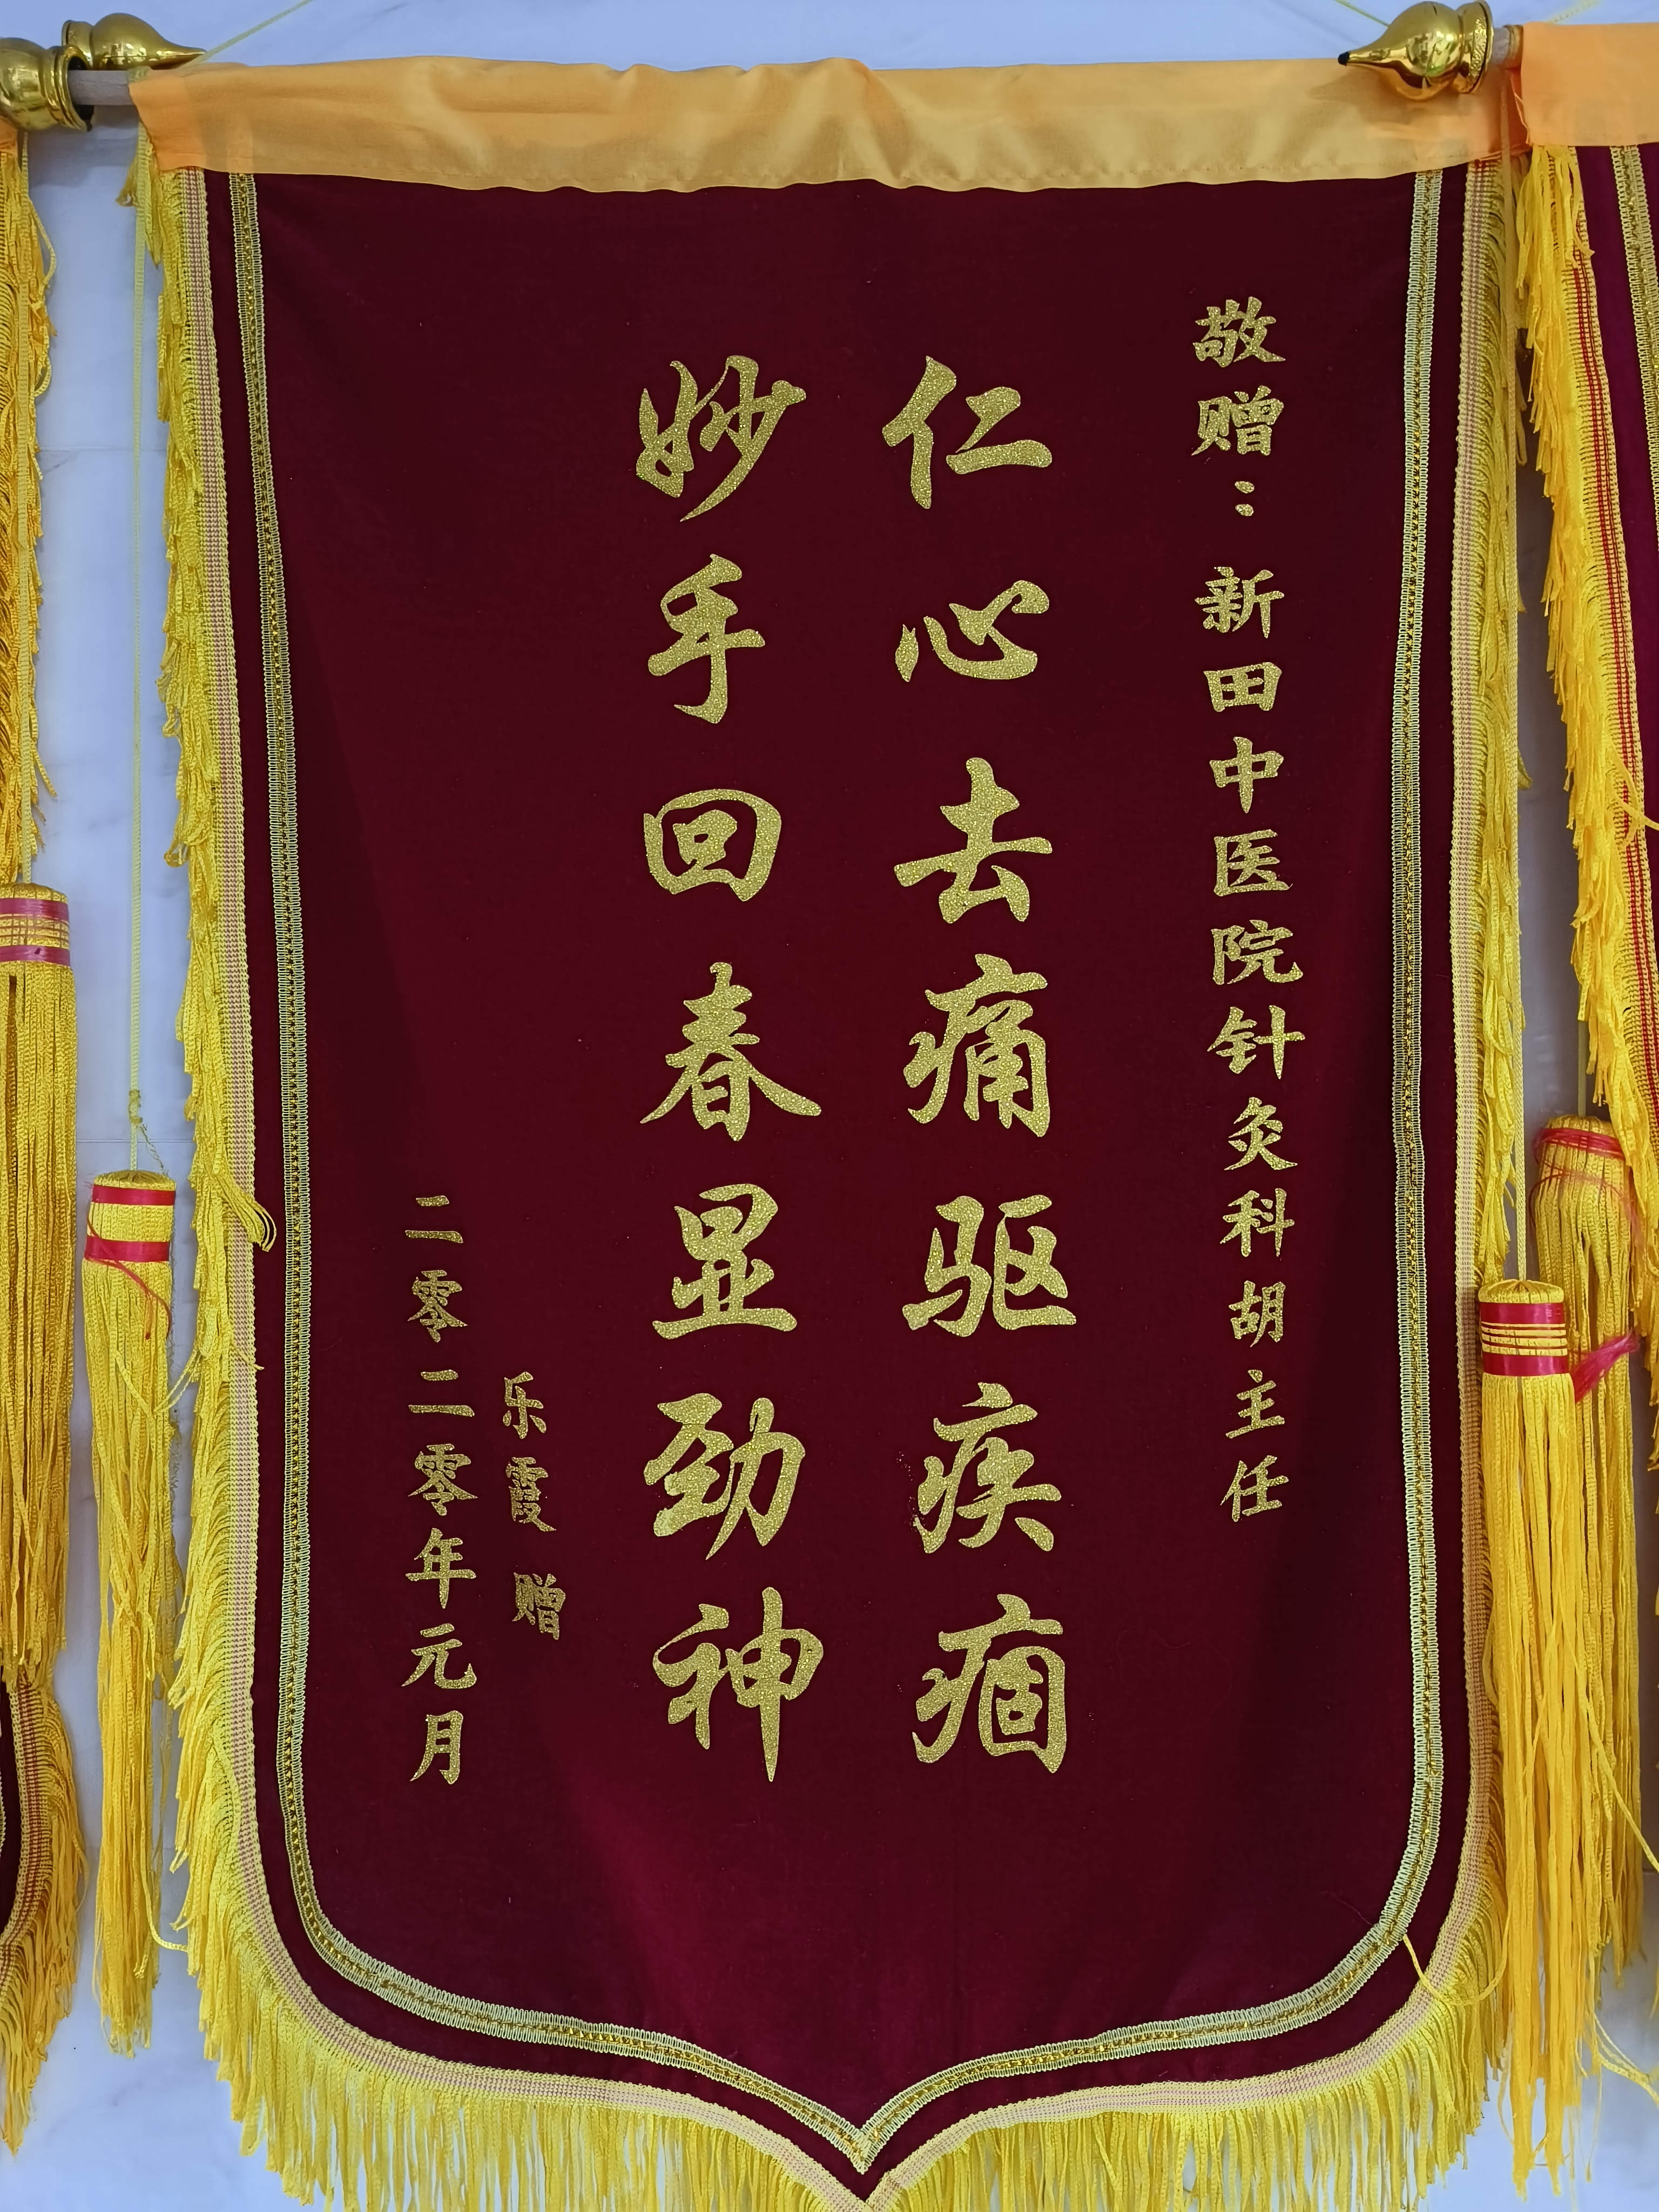 敬赠：新田中医院针灸科胡主任
仁心去痛驱疾痼
妙手回春显劲神
乐霞 赠
二零二零年元月